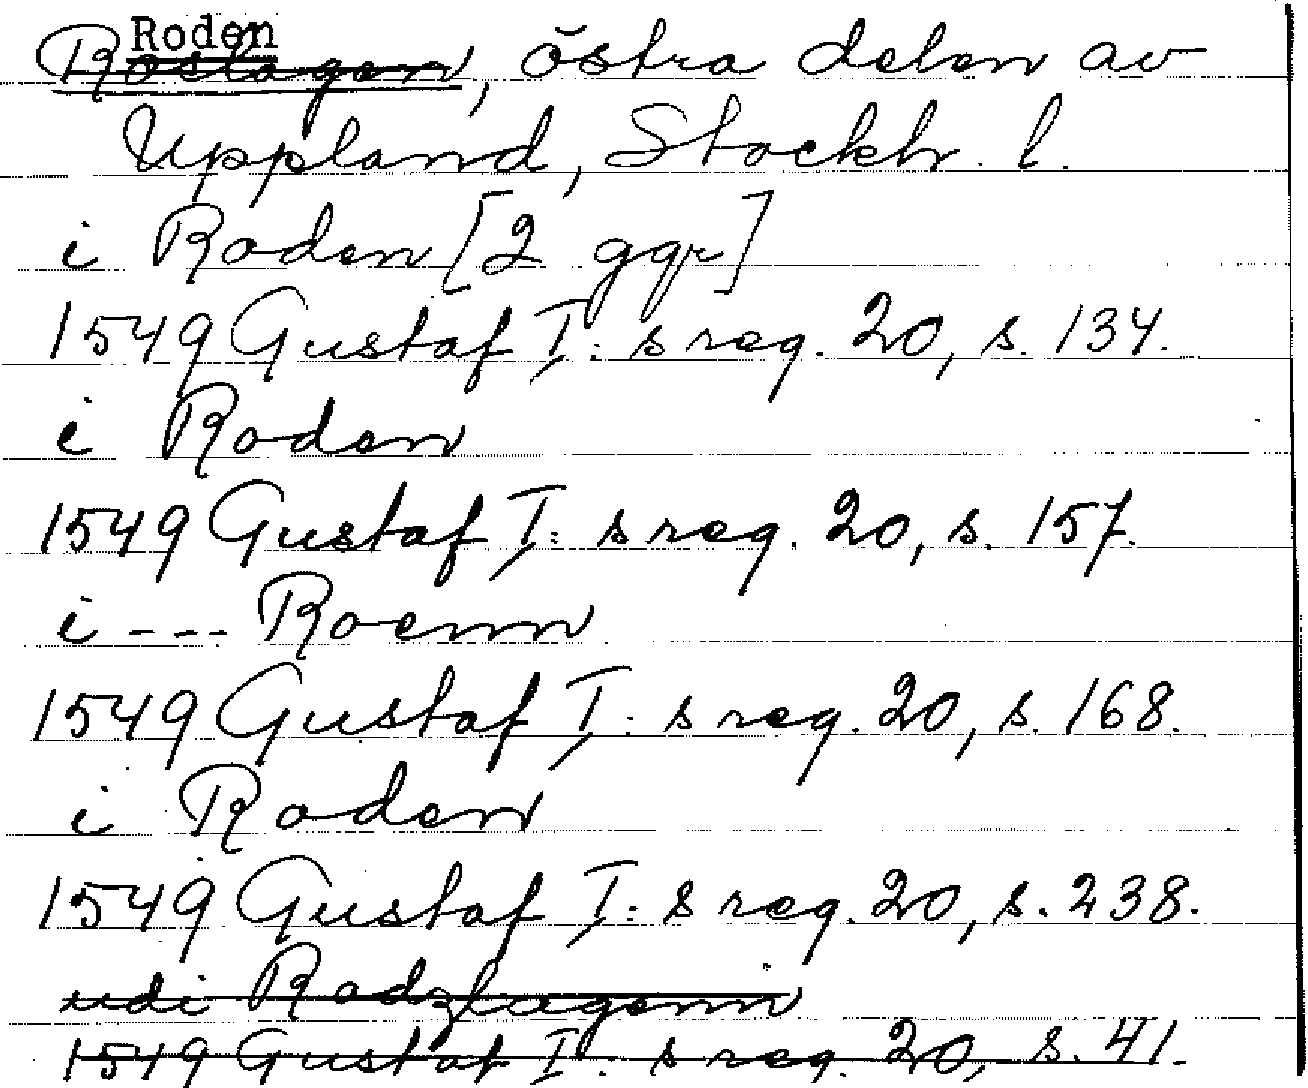 Roden
Roslagen, östra delen av
Uppland, Stockh. l.
i Roden [2 ggr]
1549 Gustaf I: s reg. 20, s. 134.
i Roden
1549 Gustaf I: s reg. 20, s. 157.
i --- Roenn
1549 Gustaf I: s reg. 20, s. 168.
i Roden
1549 Gustaf I: s reg. 20, s. 238.
udi Rodzlagenn
1549 Gustaf I: s reg. 20, s. 41.